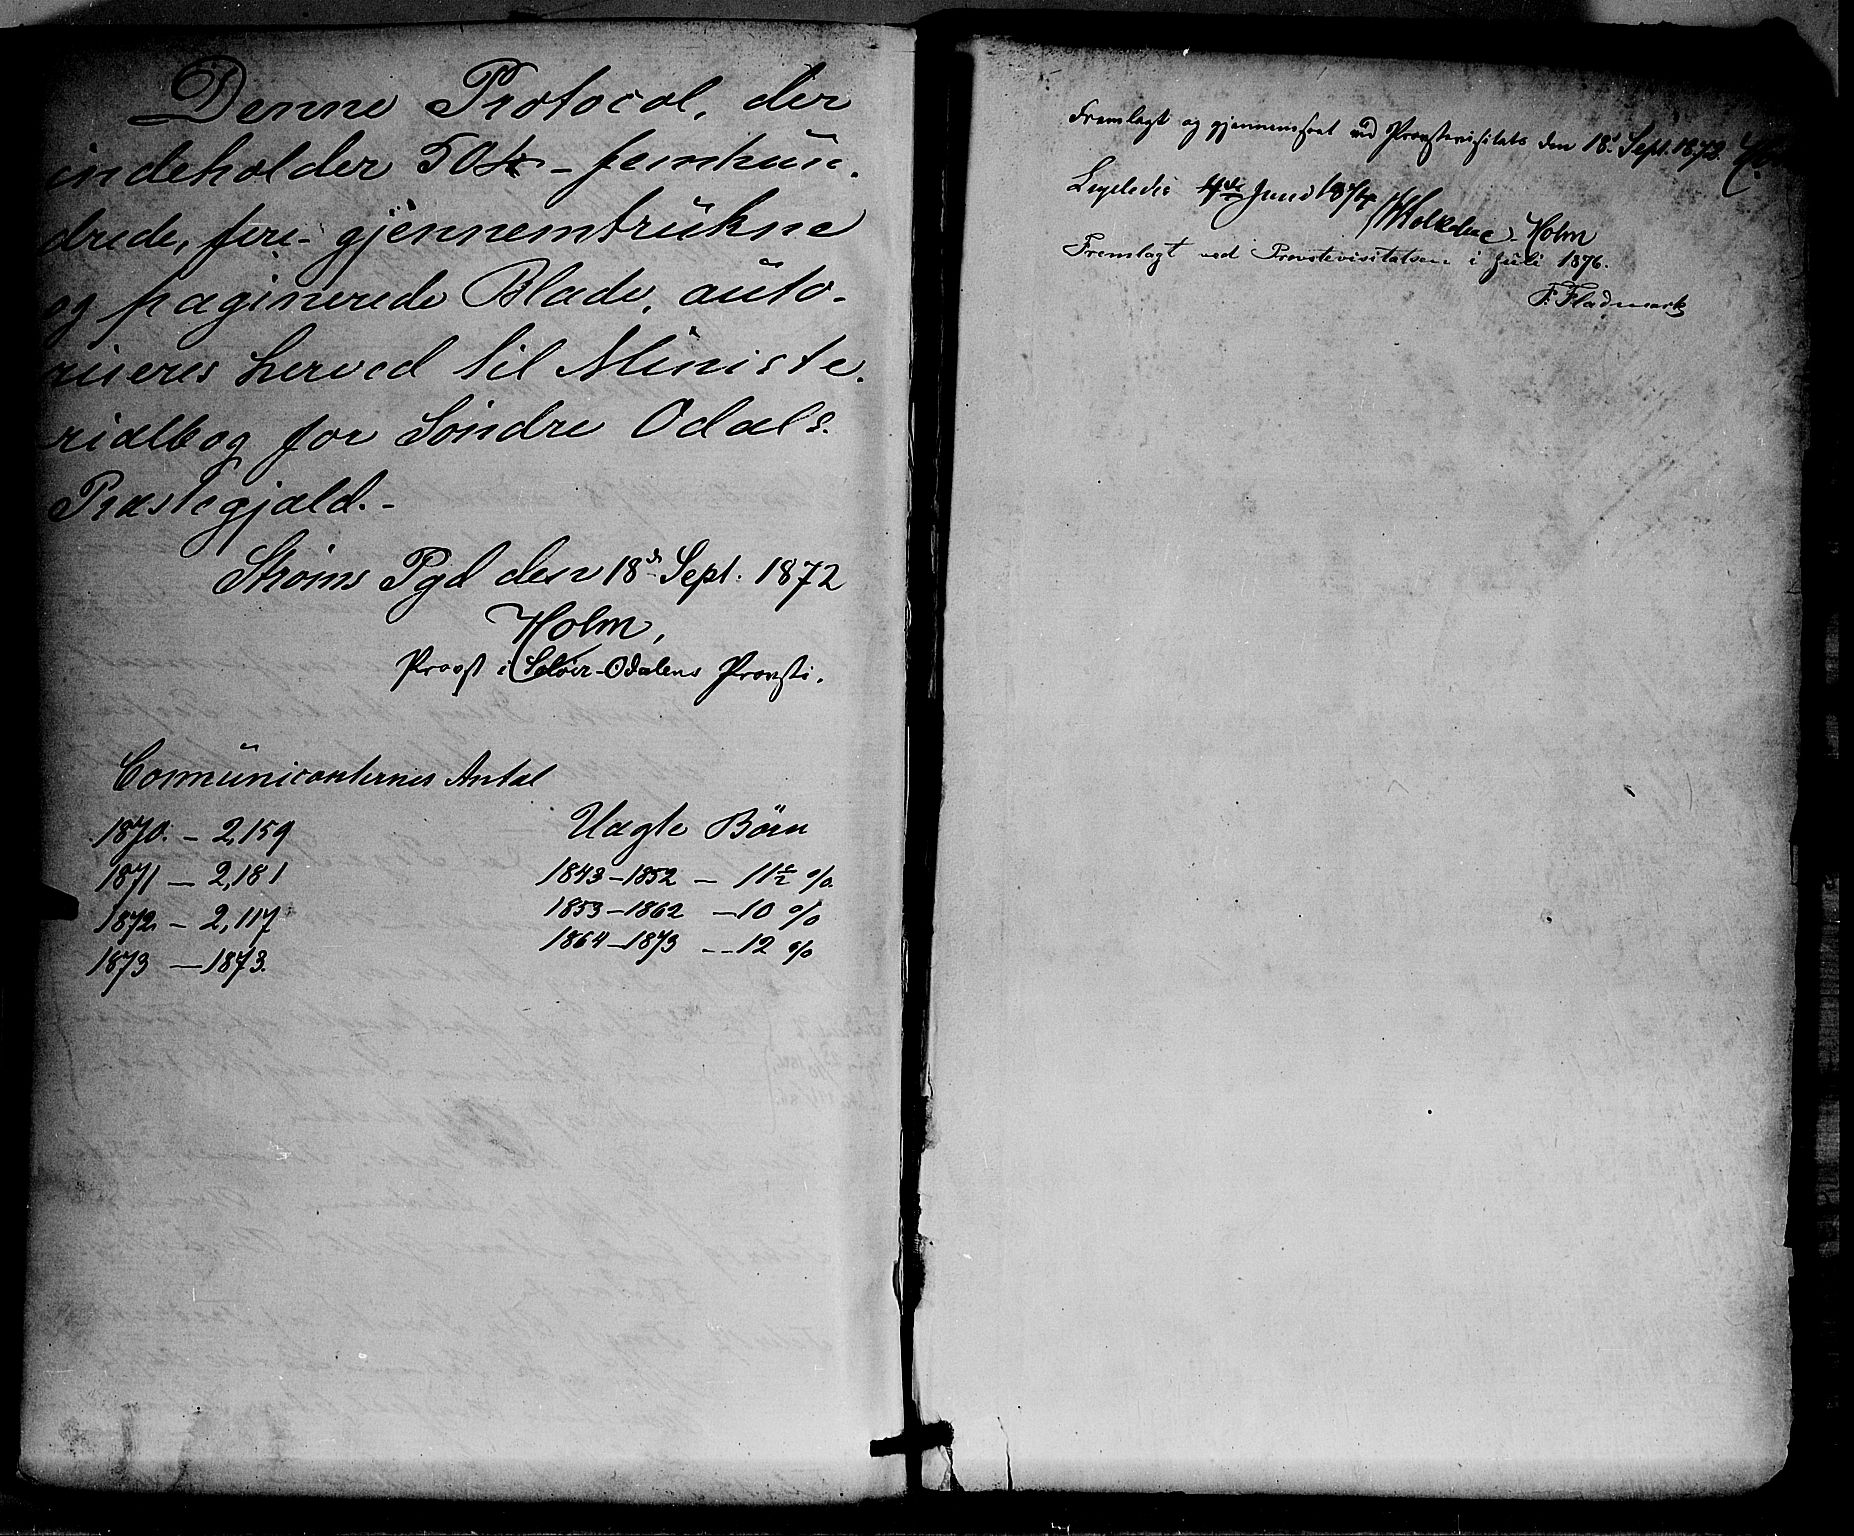 Denne Protocol, der
indeholder 504 - femhun-
drede, fire - gjennemtrukne
og paginerede Blade, auto-
riseres herved til Ministe-
rialbog for Söndre Odals
Præstegjæld. -
Strøms Pgd den 18de Sept. 1872
Holm,
Provst i Soløer-Odalens Provsti.
Communicanternes Antal
1870. - 2,159
1871 - 2,181
1872. - 2,117
1873 - 1873.
Uægte Börn
1843-1852 - 11½ %.
1853-1862 - 10 %
1864-1873 - 12 %
Fremlagt og gjennemseet ved Provstevisitats den 18. Sept. 1873. Holm
Ligeledes 4de Juni 1874
Holm
Fremlagt ved Provstevisitatsen i Juli 1876.
F. Fladmark